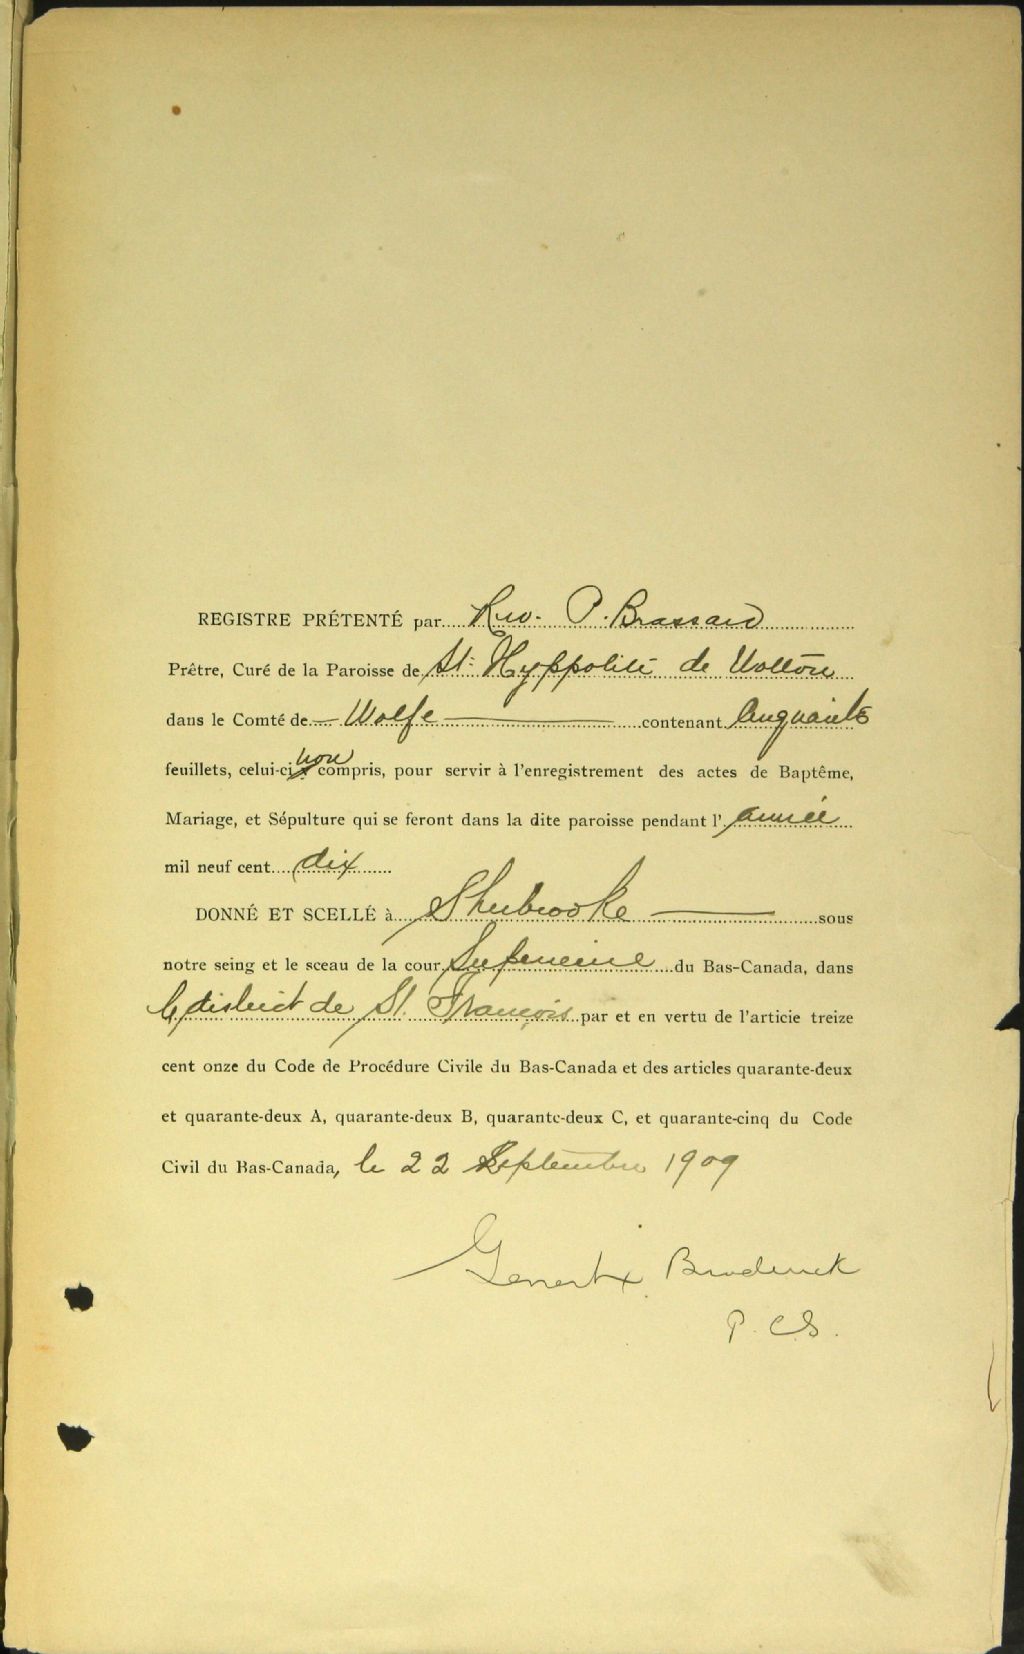 REGISTRE PRÉTENTÉ par Rev. P. Brassard
Prêtre, Curé de la Paroisse de St. Hyppolite de Wotton
dans le Comté de Wolfe contenant Cinquante
feuillets, celui-ci non compris, pour servir à l'enregistrement des actes de Baptême,
Mariage, et Sépulture qui se feront dans la dite paroisse pendant l' année
mil neuf cent dix
DONNÉ ET SCELLÉ à Sherbrooke sous
notre seing et le sceau de la cour Superieure du Bas-Canada, dans
le district de St. François par et en vertu de l'articie treize
cent onze du Code de Procédure Civile du Bas-Canada et des articles quarante-deux
et quarante-deux A, quarante-deux B, quarante-deux C, et quarante-cinq du Code
Civil du Bas-Canada, le 22 Septembre 1909
Broderick
P. C. S.